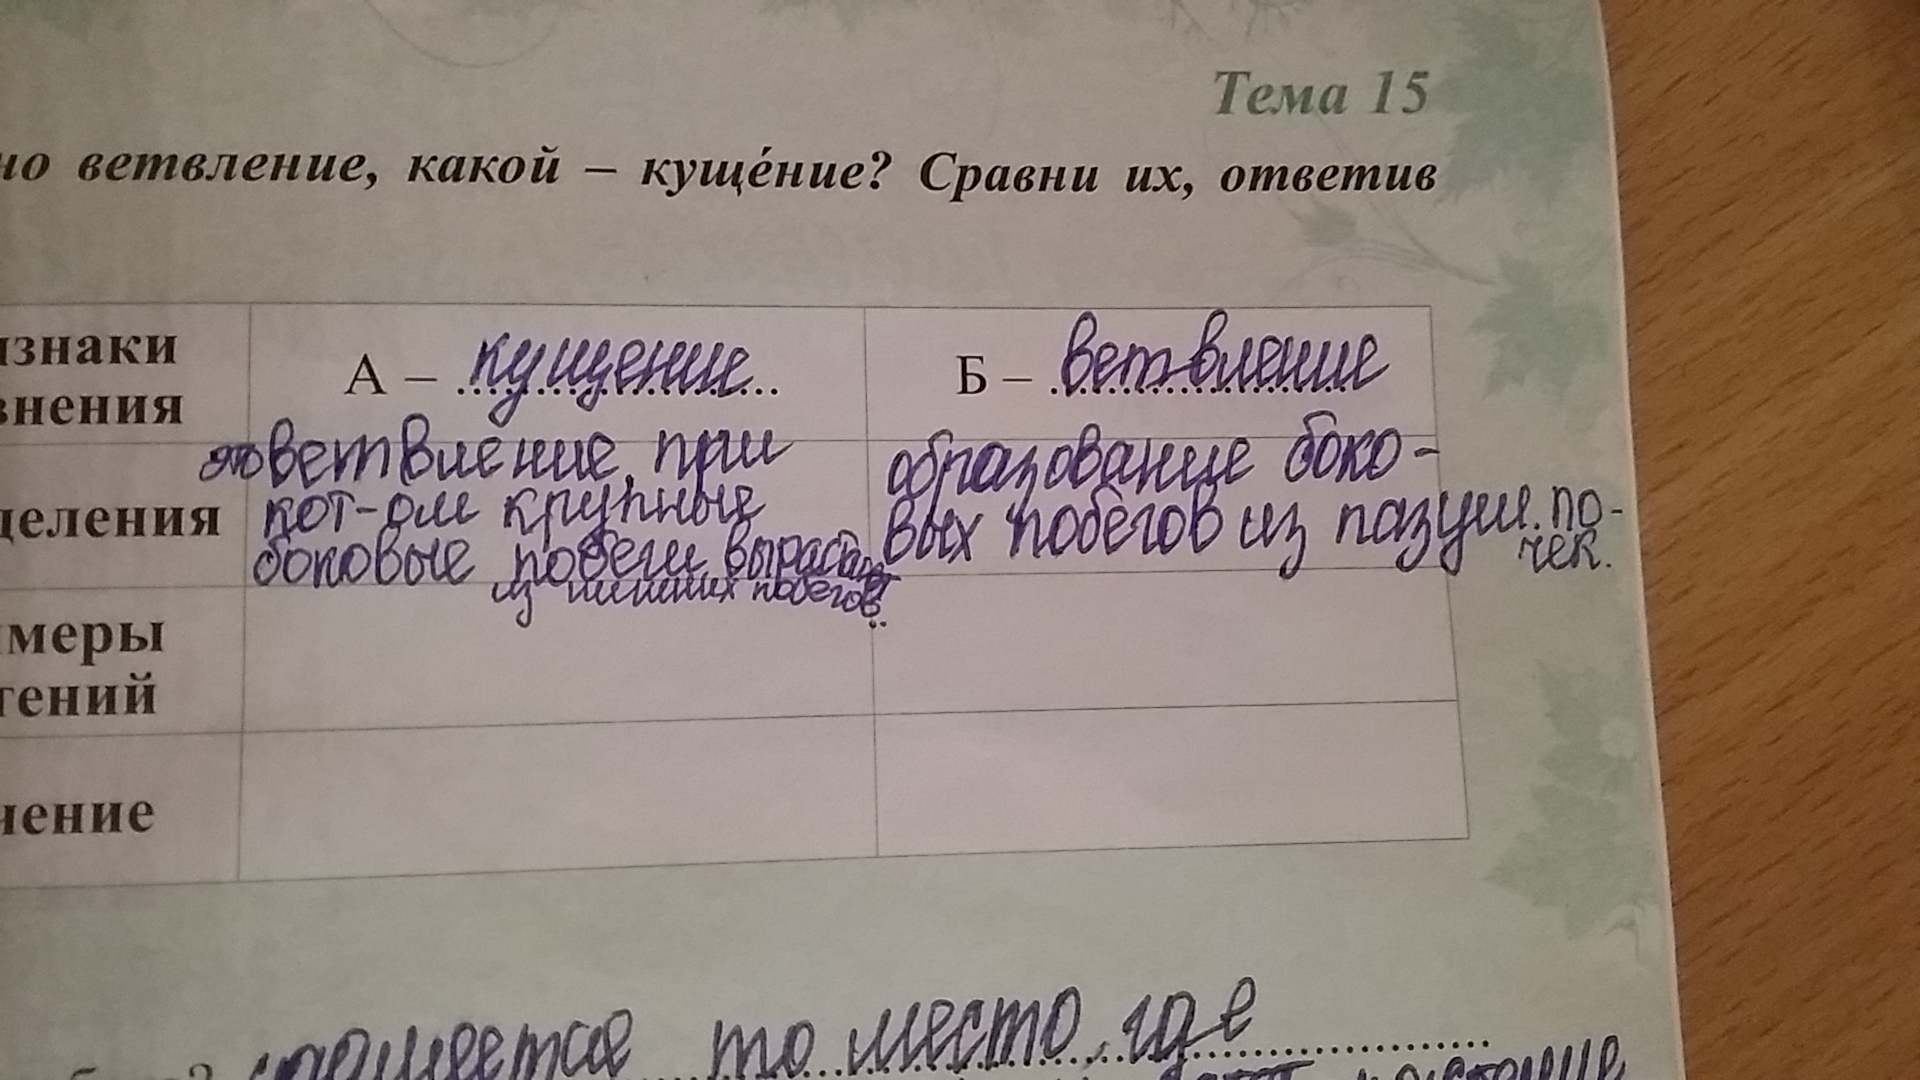 Тема 15
но ветвление, какой – куще́ние? Сравни их, ответив
изнаки
знения
А – кущение
Б – ветвление
деления
ветвление при
кот-ом крупные
боковые побеги выраст
из нижних побегов
образование боко-
вых побегов из пазуш. по-
чек.
меры
тений
чение
то место, где